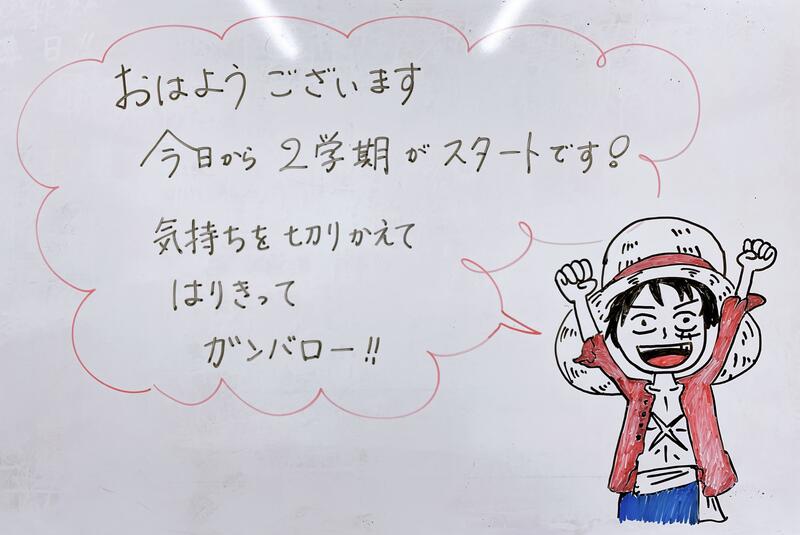 おはようございます
今日から2学期がスタートです!
気持ちを切りかえて
はりきって
ガンバロー!!